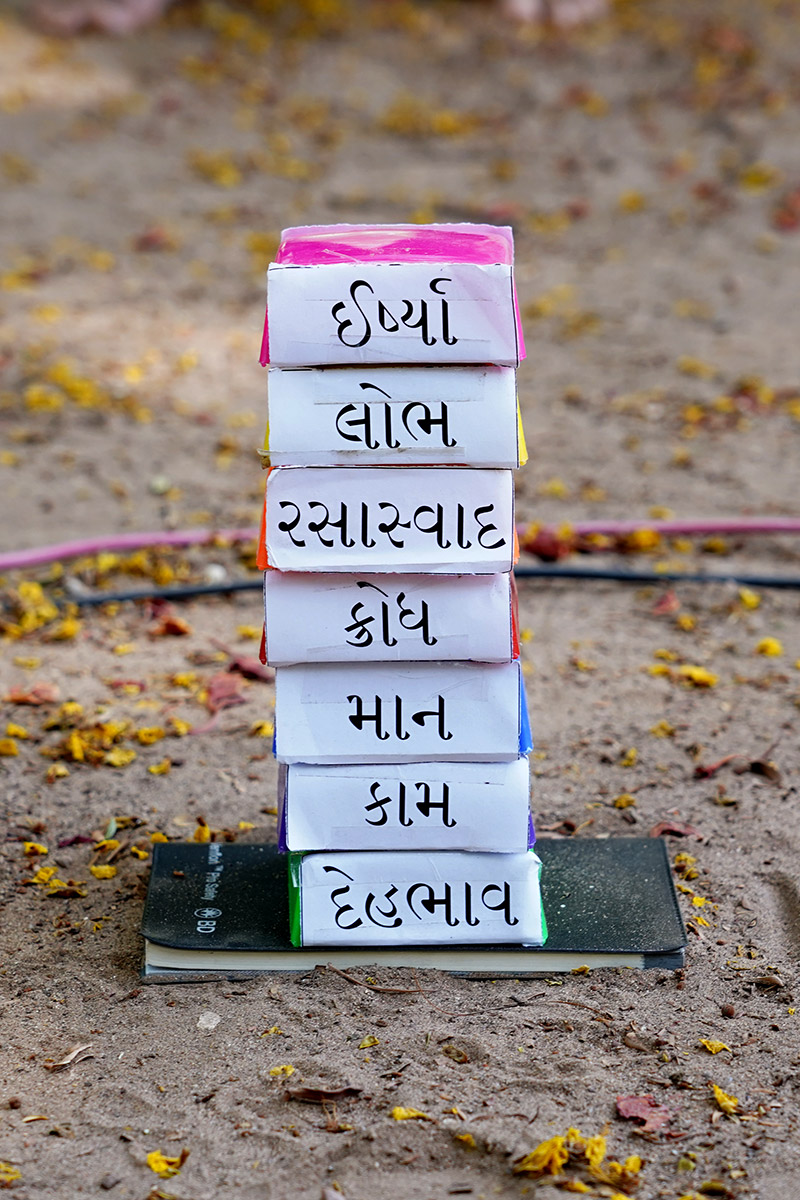 ઈર્ષ્યા
લોભ
રસાસ્વાદ
ક્રોધ
માન
કામ
દેહભાવ
BD